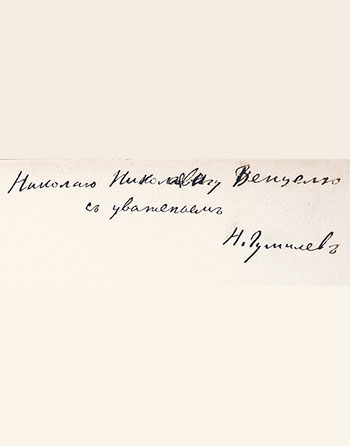 Николаю Николаевичу Венцелю
съ уваженіемъ
Н. Гумилевъ